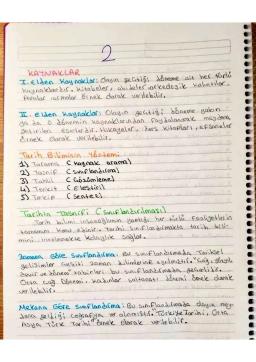 2
KAYNAKLAR
I. elden Kaynaklar: Olayın geçtiği döneme ait her türlü
kaynaklardır. kitabeler, abideler arkeolojik kalıntılar,
Paralar örnek olarak verilebilir.
II. elden Kaynaklar: Olayın geçtiği döneme yakın
ya da o dönemin kaynaklarından faydalanarak meydana
getirilen eserlerdir. Hikayeler, ders kitapları, efsaneler
Örnek olarak verilebilir.
Tarih Biliminin Yöntemi
1) Tarama (kaynak arama)
2) Tasnif (Sınıflandırma)
3) Tahlil (Çözümleme)
4) Tenkit (Eleştiri)
5) Terkip (Sentez)
Tarihin Tasnifi (Sınıflandırılması)
Tarih bilimi insanlığın yaptığı her türlü faaliyetlerin
tamamını konu edinir. Tarihi Sınıflandırmakta tarih bili-
mini incelemekte kolaylık sağlar.
Zamana Göre Sınıflandırma: Bu sınıflandırmada Tarihsel
gelişimler tarihi zaman dilimlerine ayrılmıştır. Çağ, yüzyıl
devir ve dönem kalıpları bu sınıflandırmada
Orta çağ Dönemi, kadınlar saltanatı dönemi örnek olarak
verilebilir.
Mekana Göre Sınıflandırma: Bu sınıflandırmada olayın mey-
dana geldiği coğrafya ele alınmıştır. Türkiye Tarihi, Orta
Asya Türk Tarihi örnek olarak verilebilir.